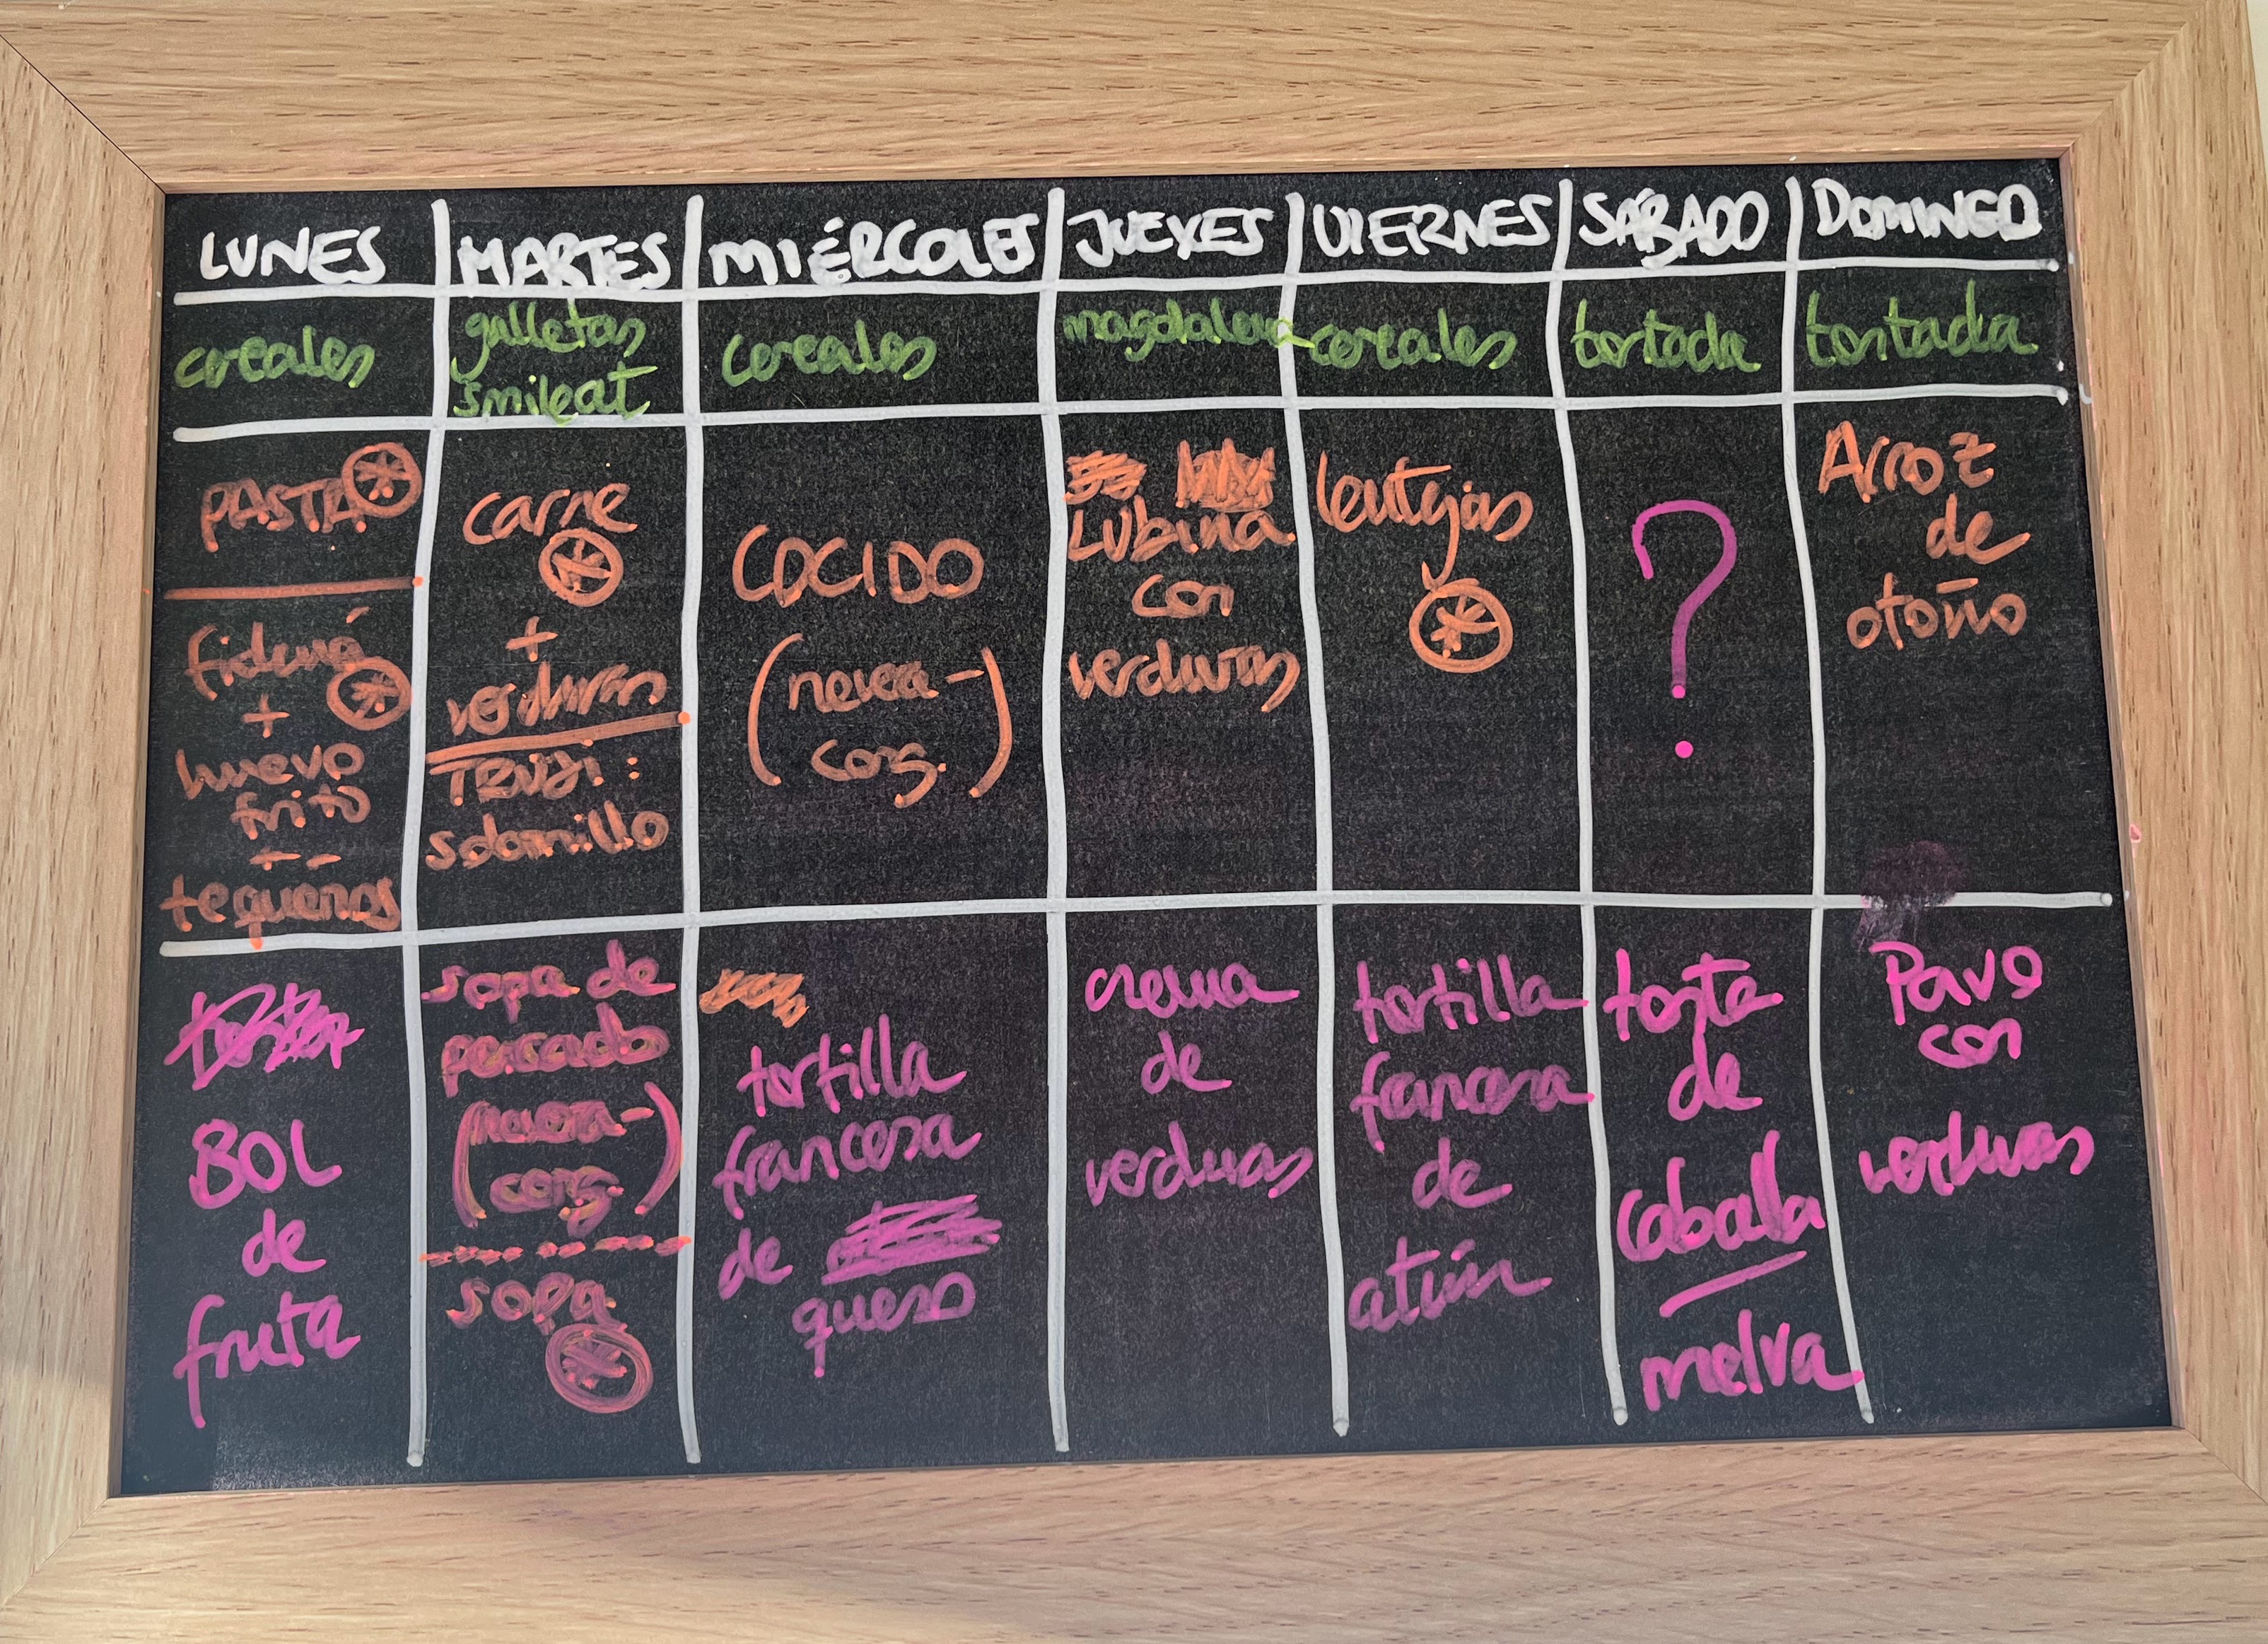 LUNES MARTES MIÉRCOLES JUEVES VIERNES SÁBADO DOMINGO
cereales
galletas
smileat
cereales
magdalena
cereales
tostada
tostada
PASTA
fideuá
+
huevo
frito
+-
tequeños
carne
+
verduras
TRUJI:
solomillo
COCIDO
(nevera-
cong.)
LUBINA
con
verduras
lentejas
?
Arroz
de
otoño
BOL
de
fruta
sopa de
pescado
(nevera-
cong.)
sopa
tortilla
francesa
de
queso
crema
de
verduras
tortilla
francesa
de
atún
tosta
de
caballa
melva
Pavo
con
verduras